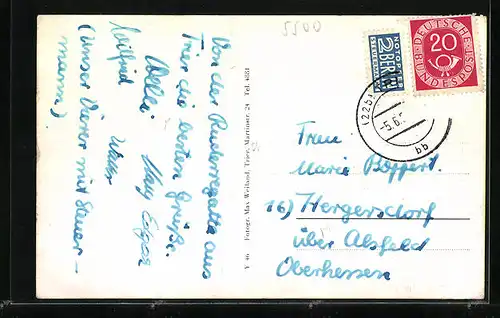 5500
Von der Ruderregatta aus
Trier die besten Grüße.
Willi
Wilfried
(unser Vierer mit Steuer-
mann.)
V 46 Fotogr. Max Weiland, Trier, Martinstr. 24 Tel. 4681
NOTOPFER
2 BERLIN
STEUERMARKE
DEUTSCHE
BUNDESPOST
20
(22b)
-5.6.
bb
Frau
Marie Boppert.
16) Hergersdorf
über Alsfeld
Oberhessen